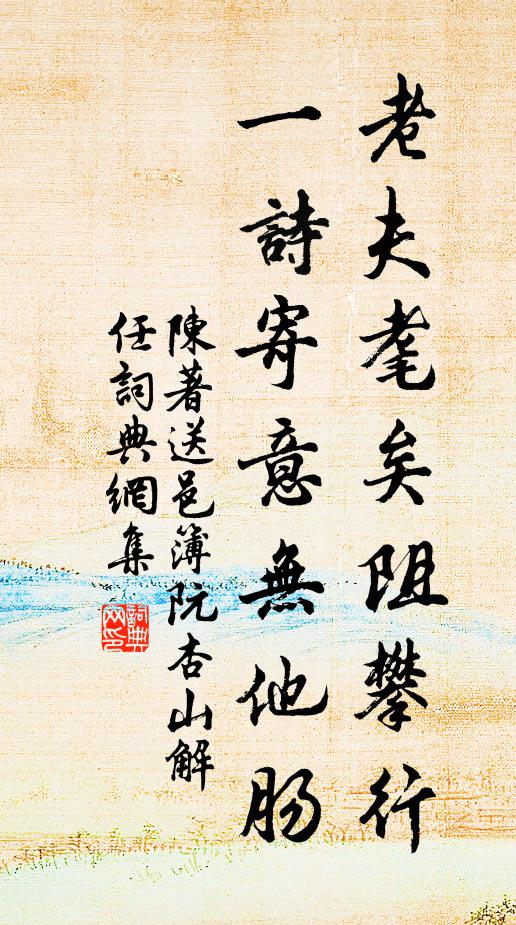 老夫耄矣阻攀行
一詩寄意無他肠
陳著送邑簿阮杏山解
任詞典網集
詞典
网印